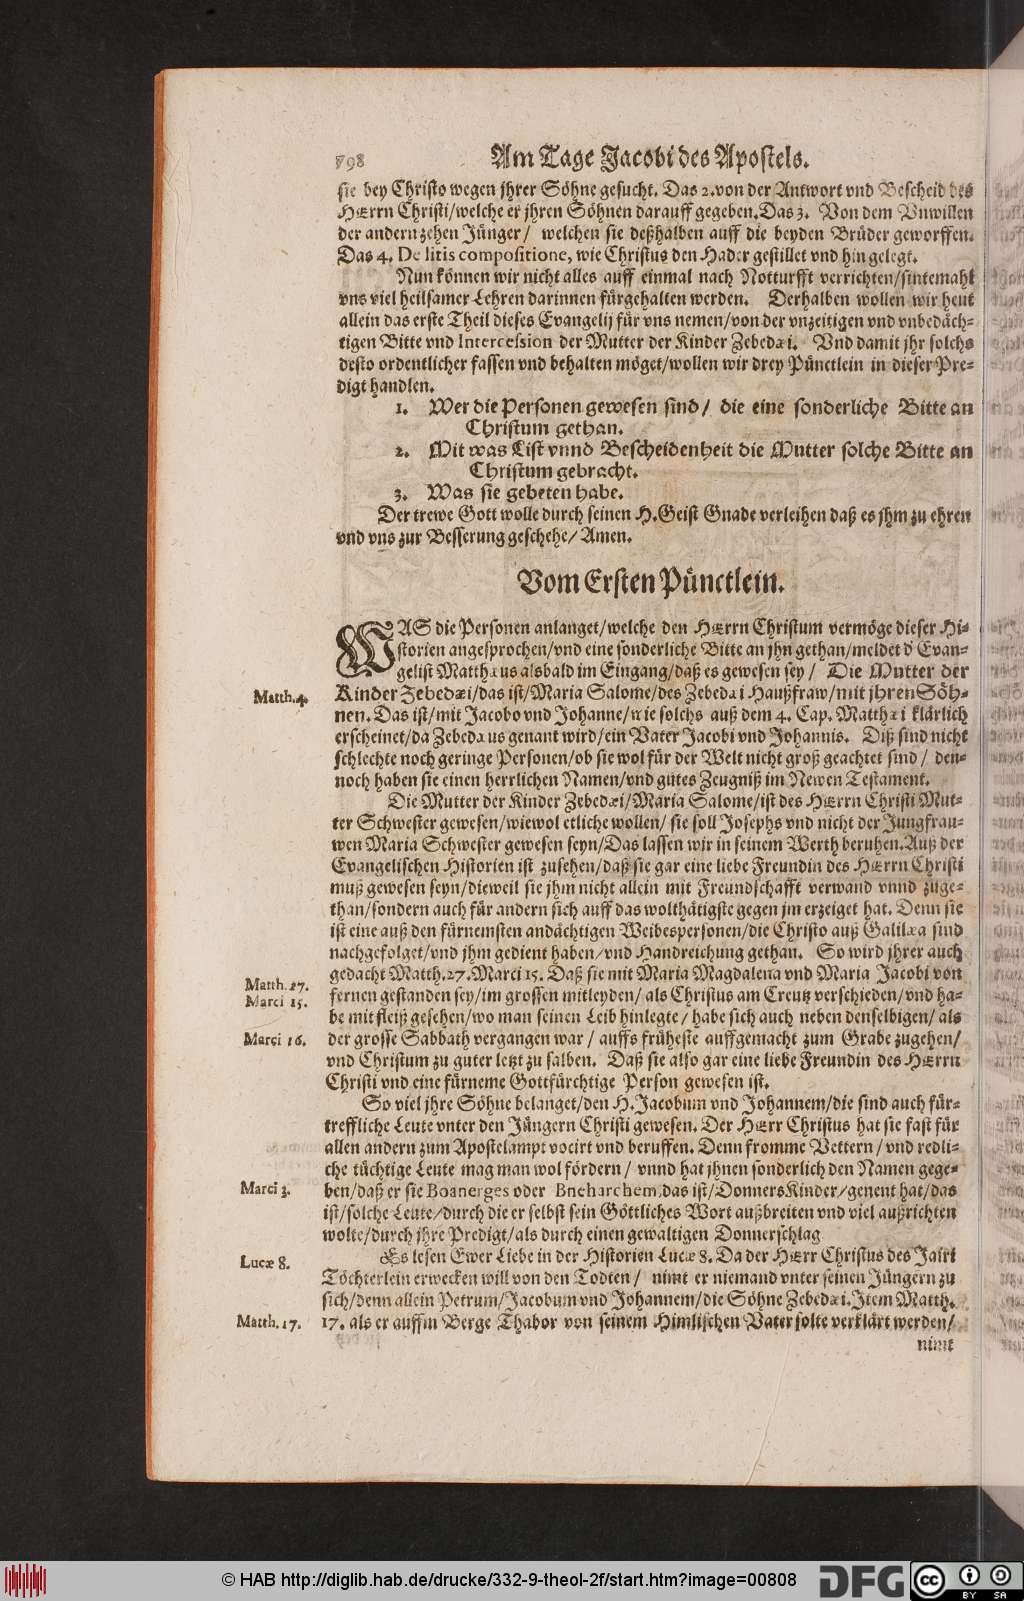 798 Am Tage Jacobi des Apostels.
sie bey Christo wegen jhrer Söhne gesucht. Das 2. von der Antwort vnd Bescheid des
HErrn Christi/welche er jhren Söhnen darauff gegeben. Das 3. Von dem Vnwillen
der andern zehen Jünger/ welchen sie deßhalben auff die beyden Brüder geworffen.
Das 4. De litis compositione, wie Christus den Hader gestillet vnd hin gelegt.
Nun können wir nicht alles auff einmal nach Notturfft verrichten/sintemahl
vns viel heilsamer Lehren darinnen fürgehalten werden. Derhalben wollen wir heut
allein das erste Theil dieses Evangelij für vns nemen/von der vnzeitigen vnd vnbedäch-
tigen Bitte vnd Intercession der Mutter der Kinder Zebedæi. Vnd damit jhr solchs
desto ordentlicher fassen vnd behalten möget/wollen wir drey Pünctlein in dieser Pre-
digt handlen.
1. Wer die Personen gewesen sind/ die eine sonderliche Bitte an
Christum gethan.
2. Mit was List vnnd Bescheidenheit die Mutter solche Bitte an
Christum gebracht.
3. Was sie gebeten habe.
Der trewe Gott wolle durch seinen H. Geist Gnade verleihen daß es jhm zu ehren
vnd vns zur Besserung geschehe/ Amen.
Vom Ersten Pünctlein.
WAS die Personen anlanget/welche den HErrn Christum vermöge dieser Hi-
storien angesprochen/vnd eine sonderliche Bitte an jhn gethan/meldet d̕ Evan-
gelist Matthæus alsbald im Eingang/daß es gewesen sey/ Die Mutter der
Matth.4. Kinder Zebedæi/das ist/Maria Salome/des Zebedæi Haußfraw/mit jhren Söh-
nen. Das ist/mit Jacobo vnd Johanne/wie solchs auß dem 4. Cap. Matthæi klärlich
erscheinet/da Zebedæus genant wird/ein Vater Jacobi vnd Johannis. Diß sind nicht
schlechte noch geringe Personen/ob sie wol für der Welt nicht groß geachtet sind/ den-
noch haben sie einen herrlichen Namen/vnd gutes Zeugniß im Newen Testament.
Die Mutter der Kinder Zebedæi/Maria Salome/ist des HErrn Christi Mut-
ter Schwester gewesen/wiewol etliche wollen/ sie soll Josephs vnd nicht der Jungfrau-
wen Maria Schwester gewesen seyn/Das lassen wir in seinem Werth beruhen. Auß der
Evangelischen Historien ist zusehen/daß sie gar eine liebe Freundin des HErrn Christi
muß gewesen seyn/dieweil sie jhm nicht allein mit Freundschafft verwand vnnd zuge-
than/sondern auch für andern sich auff das wolthätigste gegen jm erzeiget hat. Denn sie
ist eine auß den fürnemsten andächtigen Weibespersonen/die Christo auß Galilæa sind
nachgefolget/vnd jhm gedient haben/vnd Handreichung gethan. So wird jhrer auch
Matth.27. gedacht Matth.27. Marci 15. Daß sie mit Maria Magdalena vnd Maria Jacobi von
Marci 15. fernen gestanden sey/im grossen mitleyden/ als Christus am Creutz verschieden/vnd ha-
be mit fleiß gesehen/wo man seinen Leib hinlegte/ habe sich auch neben denselbigen/ als
Marci 16. der grosse Sabbath vergangen war/ auffs früheste auffgemacht zum Grabe zugehen/
vnd Christum zu guter letzt zu salben. Daß sie also gar eine liebe Freundin des HErrn
Christi vnd eine fürneme Gottfürchtige Person gewesen ist.
So viel jhre Söhne belanget/den H. Jacobum vnd Johannem/die sind auch für-
treffliche Leute vnter den Jüngern Christi gewesen. Der HErr Christus hat sie fast für
allen andern zum Apostelampt vocirt vnd beruffen. Denn fromme Vettern/ vnd redli-
che tüchtige Leute mag man wol fördern/ vnnd hat jhnen sonderlich den Namen gege-
Marci 3. ben/daß er sie Boanerges oder Bneharchem, das ist/DonnersKinder/genent hat/das
ist/solche Leute/durch die er selbst sein Göttliches Wort außbreiten vnd viel außrichten
wolte/durch jhre Predigt/als durch einen gewaltigen Donnerschlag
Lucæ 8. Es lesen Ewer Liebe in der Historien Lucæ 8. Da der HErr Christus des Jairi
Töchterlein erwecken will von den Todten/ nimt er niemand vnter seinen Jüngern zu
sich/denn allein Petrum/Jacobum vnd Johannem/die Söhne Zebedæi. Item Matth.
Matth.17. 17. als er auffm Berge Thabor von seinem Himlischen Vater solte verklärt werden/
nimt
© HAB http://diglib.hab.de/drucke/332-9-theol-2f/start.htm?image=00808 DFG cc BY SA